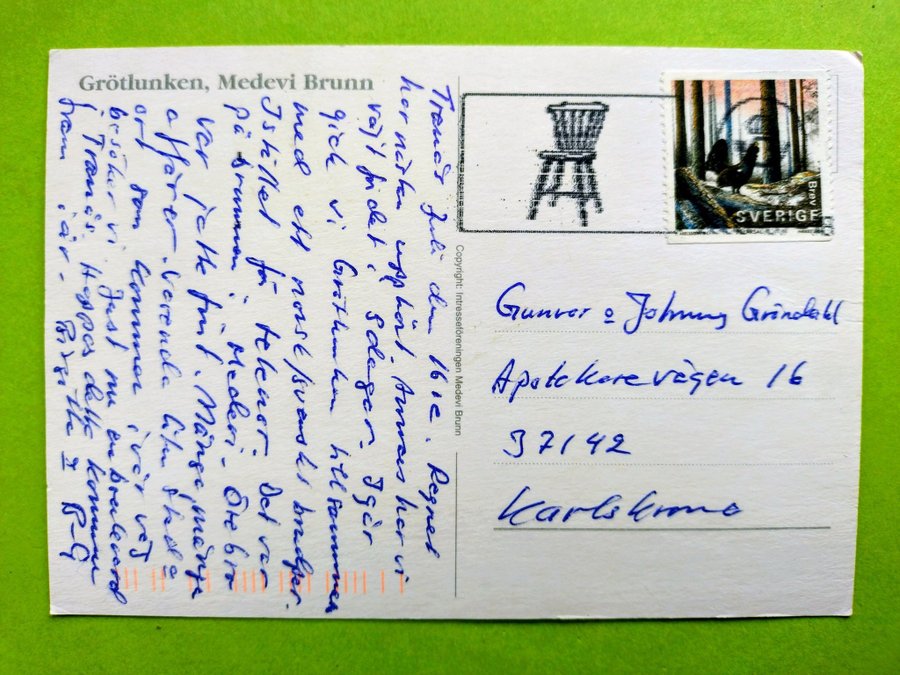 Grötlunken, Medevi Brunn
Tranås Juli den 16:e. Regnet
har nästan upphört. Annars har vi
växt för det i dagar. Igår
gick vi Grötlunken tillsammans
med ett norskt/svenskt brudpar.
Istället för tekener. Det var
på brunnen i Medevi - Örebro
var jätte fint. Många, många
affärer. Varenda liten stad o
ort som kommer i vår väg
besöker vi. Just nu en
i Tranås. Hoppas detta kommer
fram i år - Birgitta I B-G
Copyright: Intresseföreningen Medevi Brunn
Brev
SVERIGE
Gunvor o Johnny Gröndahl
Apotekarevägen 16
37142
Karlskrona